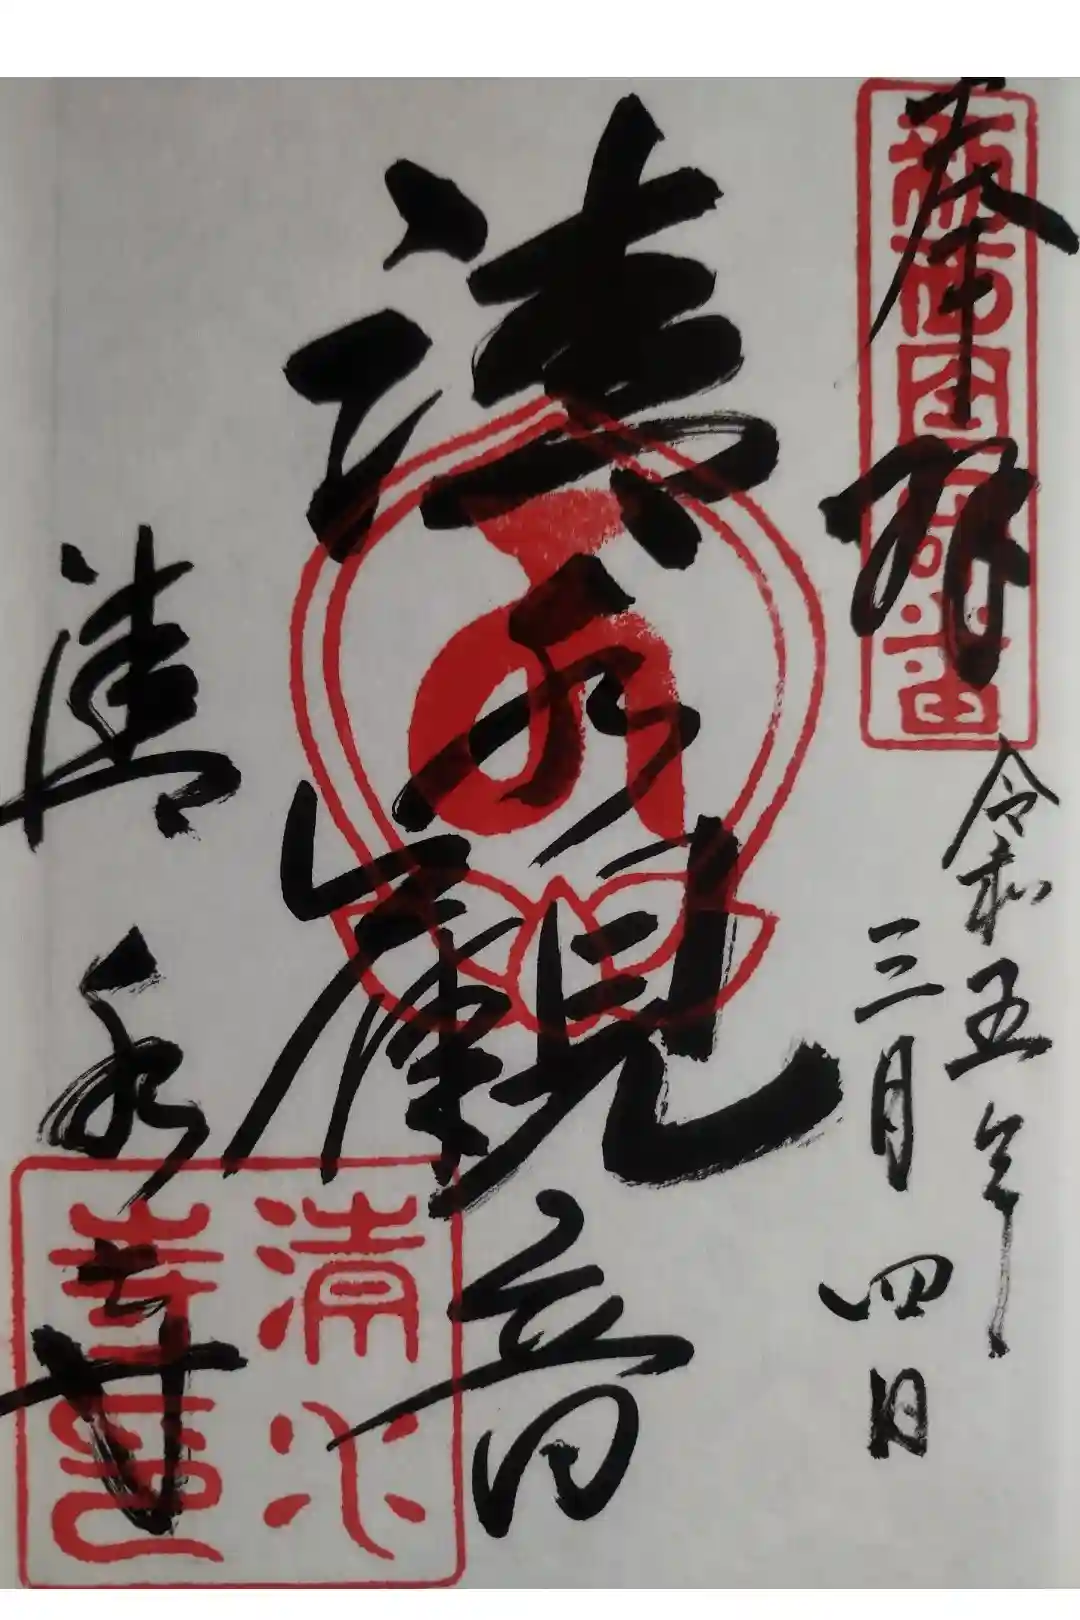 奉拝
新西国
番
令和五年
三月四日
清水觀音
清水寺
清水
寺印